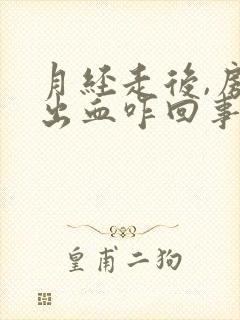 月經走後,房
出血咋回事
皇甫二狗